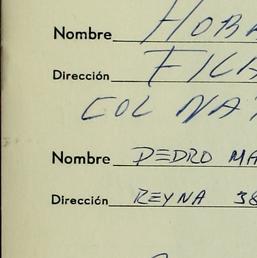 Nombre HORA
Dirección FICA
COL NA
Nombre PEDRO MA
Dirección REYNA 38